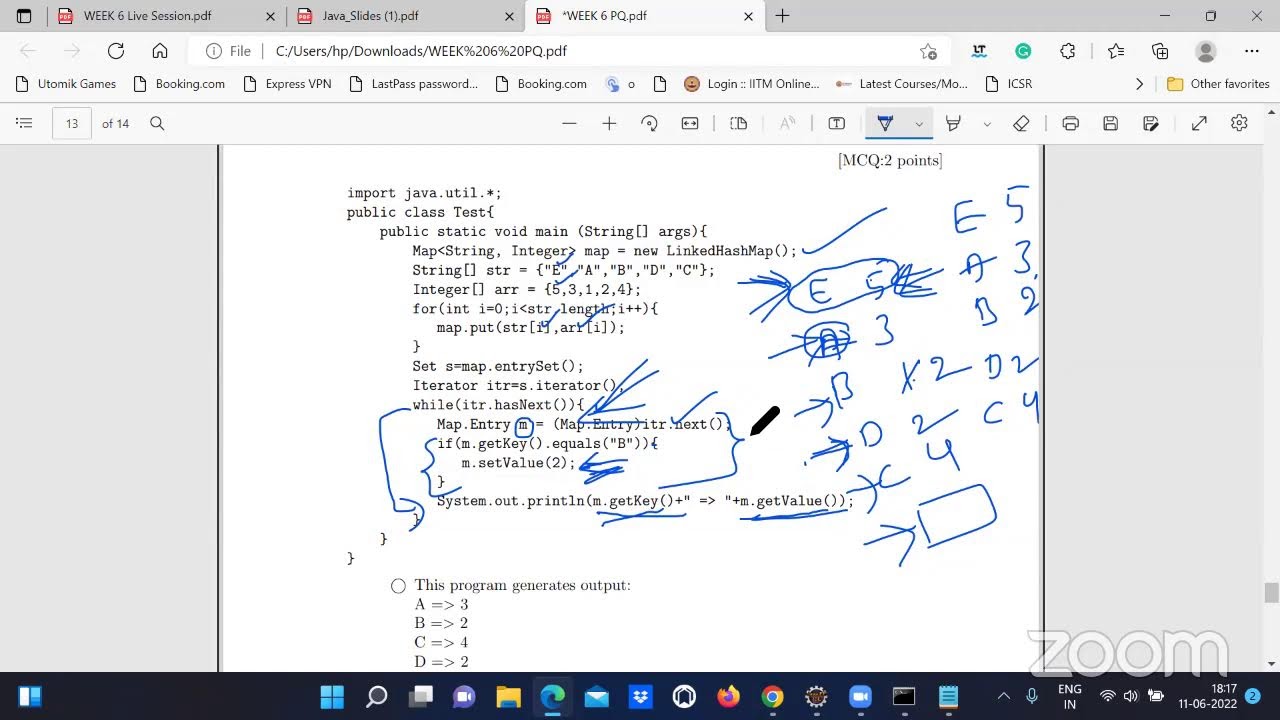 WEEK 6 Live Session.pdf
Java_Slides (1).pdf
*WEEK 6 PQ.pdf
File
C:/Users/hp/Downloads/WEEK%206%20PQ.pdf
LT
Utomik Games
Booking.com
Express VPN
LastPass password...
Booking.com
o
Login :: IITM Online...
Latest Courses/Mo...
ICSR
Other favorites
13 of 14
[MCQ:2 points]
import java.util.*;
public class Test{
public static void main (String[] args){
Map<String, Integer> map = new LinkedHashMap();
String[] str = {"E","A","B","D","C"};
Integer[] arr = {5,3,1,2,4};
for(int i=0;i<str.length;i++){
map.put(str[i],arr[i]);
}
Set s=map.entrySet();
Iterator itr=s.iterator();
while(itr.hasNext()){
Map.Entry m = (Map.Entry)itr.next();
if(m.getKey().equals("B")){
m.setValue(2);
}
System.out.println(m.getKey()+" => "+m.getValue());
}
}
}
This program generates output:
A => 3
B => 2
C => 4
D => 2
E 5
A 3
B 2
D 2
C 4
E 5
A 3
B 2
D 2
C 4
zoom
ENG
IN
18:17
11-06-2022
2